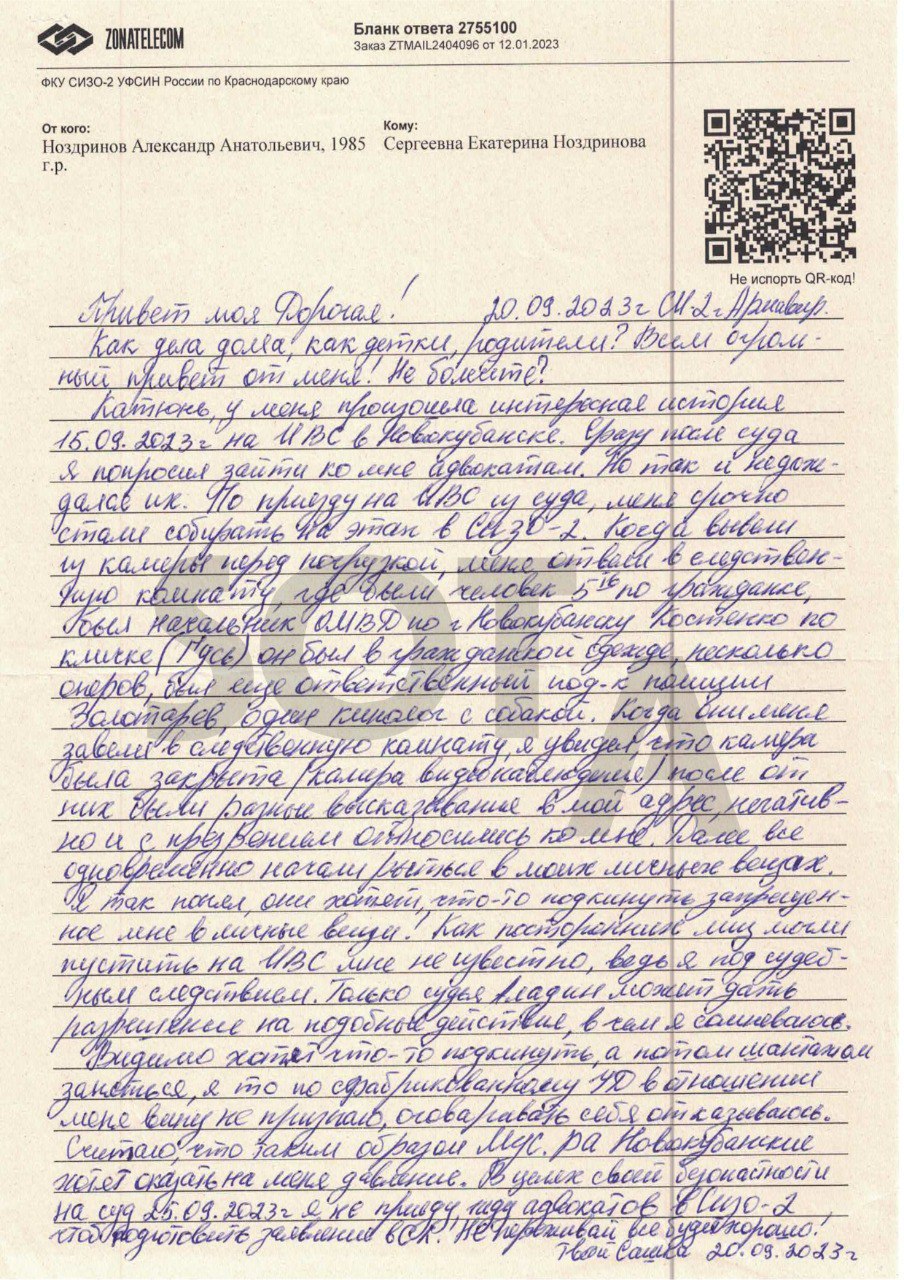 ZONATELECOM
Бланк ответа 2755100
Заказ ZTMAIL2404096 от 12.01.2023
ФКУ СИЗО-2 УФСИН России по Краснодарскому краю
От кого:
Ноздринов Александр Анатольевич, 1985
г.р.
Кому:
Сергеевна Екатерина Ноздринова
Не испорть QR-код!
Привет моя Дорогая! 20.09.2023г СИ-2 г Армавир.
Как дела дома, как детки, родители? Всем огром-
ный привет от меня! Не болеите?
Катюнь, у меня произошла интересная история
15.09.2023г на ИВС в Новокубанске. Сразу после суда
я попросил зайти ко мне адвокатам. Но так и недож-
дался их. По приезду на ИВС из суда, меня срочно
стали собирать на этап в СИЗО-2. Когда вывели
из камеры перед погрузкой, меня отвели в следствен-
ную комнату, где были человек 5 по гражданке,
был начальник ОМВД по г Новокубанску Костенко по
кличке (Гусь) он был в гражданской одежде, несколько
оперов, был еще ответственный под-к полиции
Золотарев один кинолог с собакой. Когда они меня
завели в следственную комнату, я увидел, что камера
была закрыта (камера видеонаблюдения) после от
них были разные высказывания в мой адрес, негатив-
но и с презрением относились ко мне. Далее все
одновременно начали рыться в моих личных вещах.
Я так понял, они хотят, что-то подкинуть запрещен-
ное мне в личные вещи! Как посторонних лиц могли
пустить на ИВС мне не известно, ведь я под судеб-
ным следствием. Только судья Аладин может дать
разрешение на подобные действие, в чем я сомневаюсь.
Видимо хотят что-то подкинуть, а потом шантажом
заняться, я то по сфабрикованному УД в отношении
меня вину не признаю, оговаривать себя отказываюсь.
Считаю, что таким образом Мус.ра Новокубанские
хотят оказать на меня давление. В целях своей безопастности
на суд 25.09.2023г я не приеду, жду адвокатов в Сизо-2
чтоб подготовить заявление в СК. Не переживай все будет хорошо!
Твой Сашка 20.09.2023г
ЗОТА